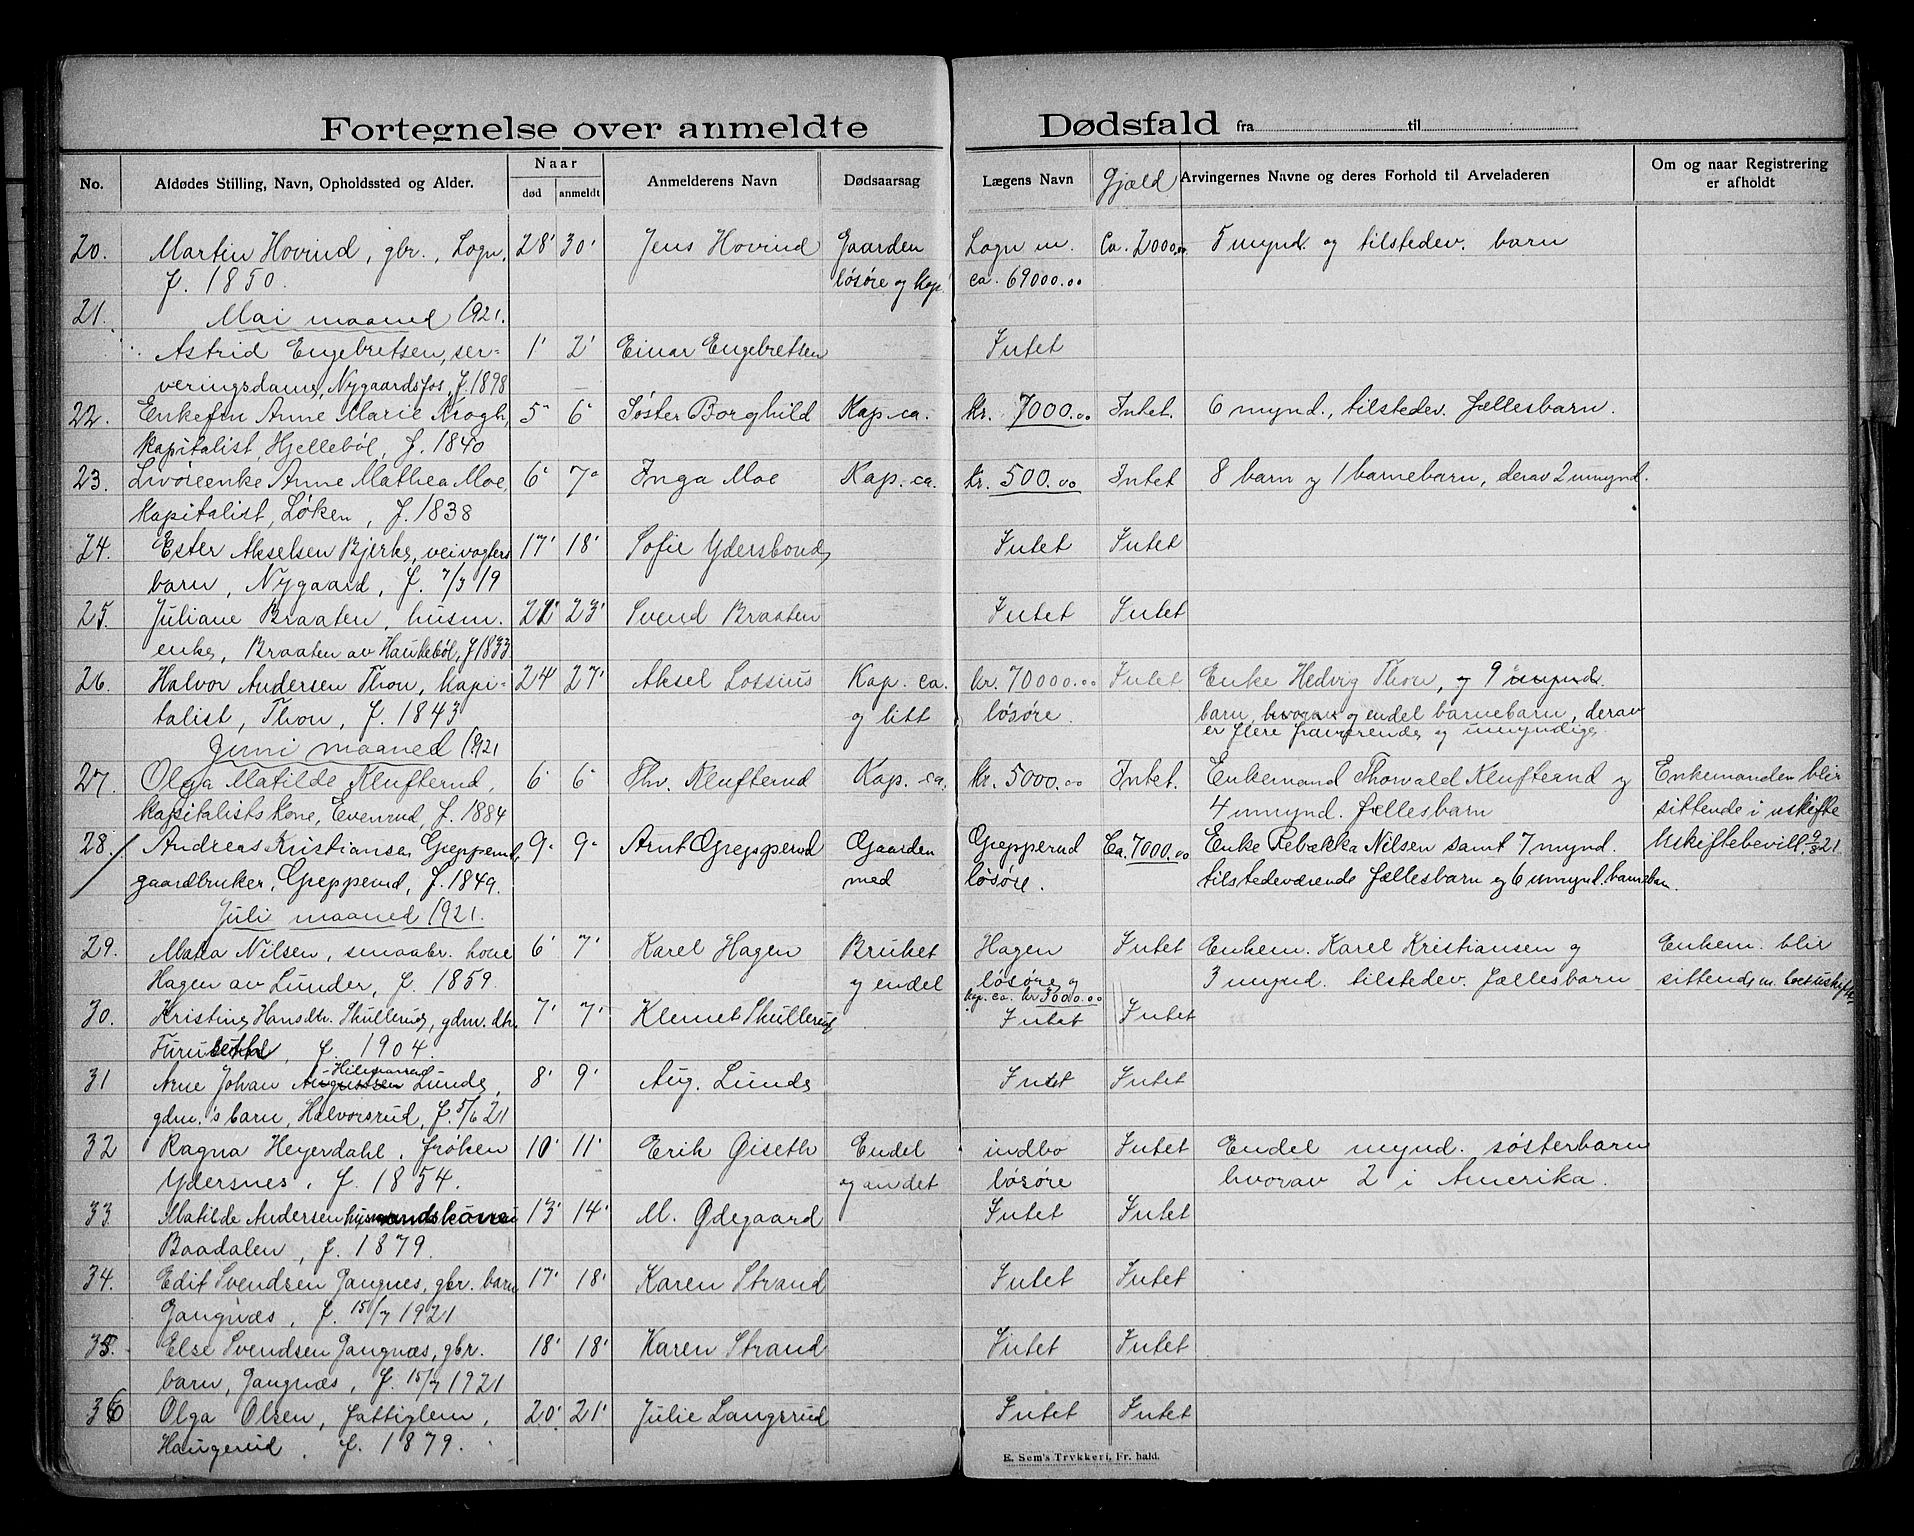 Fortegnelse over anmeldte Dødsfald fra til
No. Afdødes Stilling, Navn, Opholdssted og Alder. Naar død anmeldt Anmelderens Navn Dødsaarsag Lægens Navn Gjæld Arvingernes Navne og deres Forhold til Arveladeren Om og naar Registrering er afholdt
20. Martin Hovind, gbr., Logn, 28' 30' Jens Hovind Gaarden Logn m. Ca. 2000.00 5 mynd. og tilstedev. barn
f. 1850. løsøre og Kap. ca. 69000.00
21. Mai maaned 1921.
Astrid Engebretsen, ser- 1' 2' Einar Engebretsen Intet
veringsdame, Nygaardsfos, f. 1898
22. Enkefru Anne Marie Krogh, 5' 6' Søster Borghild Kap. ca. kr. 7000.00 Intet. 6 mynd., tilstedev. fællesbarn.
kapitalist, Hjellebøl, f. 1840
23. Livøreenke Anne Mathea Moe, 6' 7' Inga Moe Kap. ca. kr. 500.00 Intet 8 barn og 1 barnebarn, derav 2 umynd.
kapitalist, Løken, f. 1838
24. Ester Akselsen Bjerke, veivogters 17' 18' Sofie Ydersbond, Intet Intet
barn, Nygaard, f. 7/7 19
25. Juliane Braaten, husm. 22' 23' Svend Braaten Intet Intet
enke, Braaten av Haukebøl, f. 1833
26. Halvor Andersen Thon, kapi- 24' 27' Aksel Lossius Kap. ca. kr. 70000.00 Intet Enke Hedvig Thon, og 9 mynd.
talist, Thon, f. 1843 og litt løsøre. barn, hvorav og endel barnebarn, derav
Juni maaned 1921 er flere fraværende og umyndige
27. Olga Matilde Klufterud, 6' 6' Thv. Klufterud Kap. ca. kr. 5000.00 Intet. Enkemand Thorvald Klufterud og Enkemanden blir
kapitalists kone, Evenrud, f. 1884 4 umynd. fællesbarn sittende i uskifte
28. Andreas Kristiansen Grepperud, 9' 9' Arnt Grepperud Gaarden Grepperud Ca. 7000.00 Enke Rebækka Nilsen samt 7 mynd. Uskiftebevill. 9/8 21
gaardbruker, Grepperud, f. 1849. med løsøre. tilstedeværende fællesbarn og 6 umynd. barnebarn.
Juli maaned 1921.
29. Maria Nilsen, smaabr. kone 6' 7' Karel Hagen Bruket Hagen Intet Enkem. Karel Kristiansen og Enkem. blir
Hagen av Lunder, f. 1859. og endel løsøre og 3 mynd. tilstedev. fællesbarn sittende m. boet uskiftet
kap. ca. kr 3000.00
30. Kristine Hansdtr. Skullerud, gdm. dtr. 7' 7' Klemet Skullerud Intet Intet
Furusettal, f. 1904.
-Hilmarsud-
31 Arne Johan Augustsen Lunde, 8' 9' Aug. Lunde Intet Intet
gdm.'s barn, Halvorsrud, f. 5/6 21
32 Ragna Heyerdahl, frøken 10' 11' Erik Giseth Endel indbo Intet Endel mynd. søsterbarn
Ydersnes. f. 1854. og andet løsøre hvorav 2 i Amerika.
33. Matilde Andersen husmandskone 13' 14' M. Ødegaard Intet Intet
Baadalen, f. 1879.
34. Edit Svendsen Gangnes, gbr. barn 17' 18' Karen Strand Intet Intet
Gangnæs, f. 15/7 1921
35. Else Svendsen Gangnæs, gbr. 18' 18' Karen Strand Intet Intet
barn, Gangnæs, f. 15/7 1921
36 Olga Olsen, fattiglem, 20' 21' Julie Langsrud Intet Intet
Haugerud. f. 1879.
E. Sem's Trykkeri, Fr. hald.